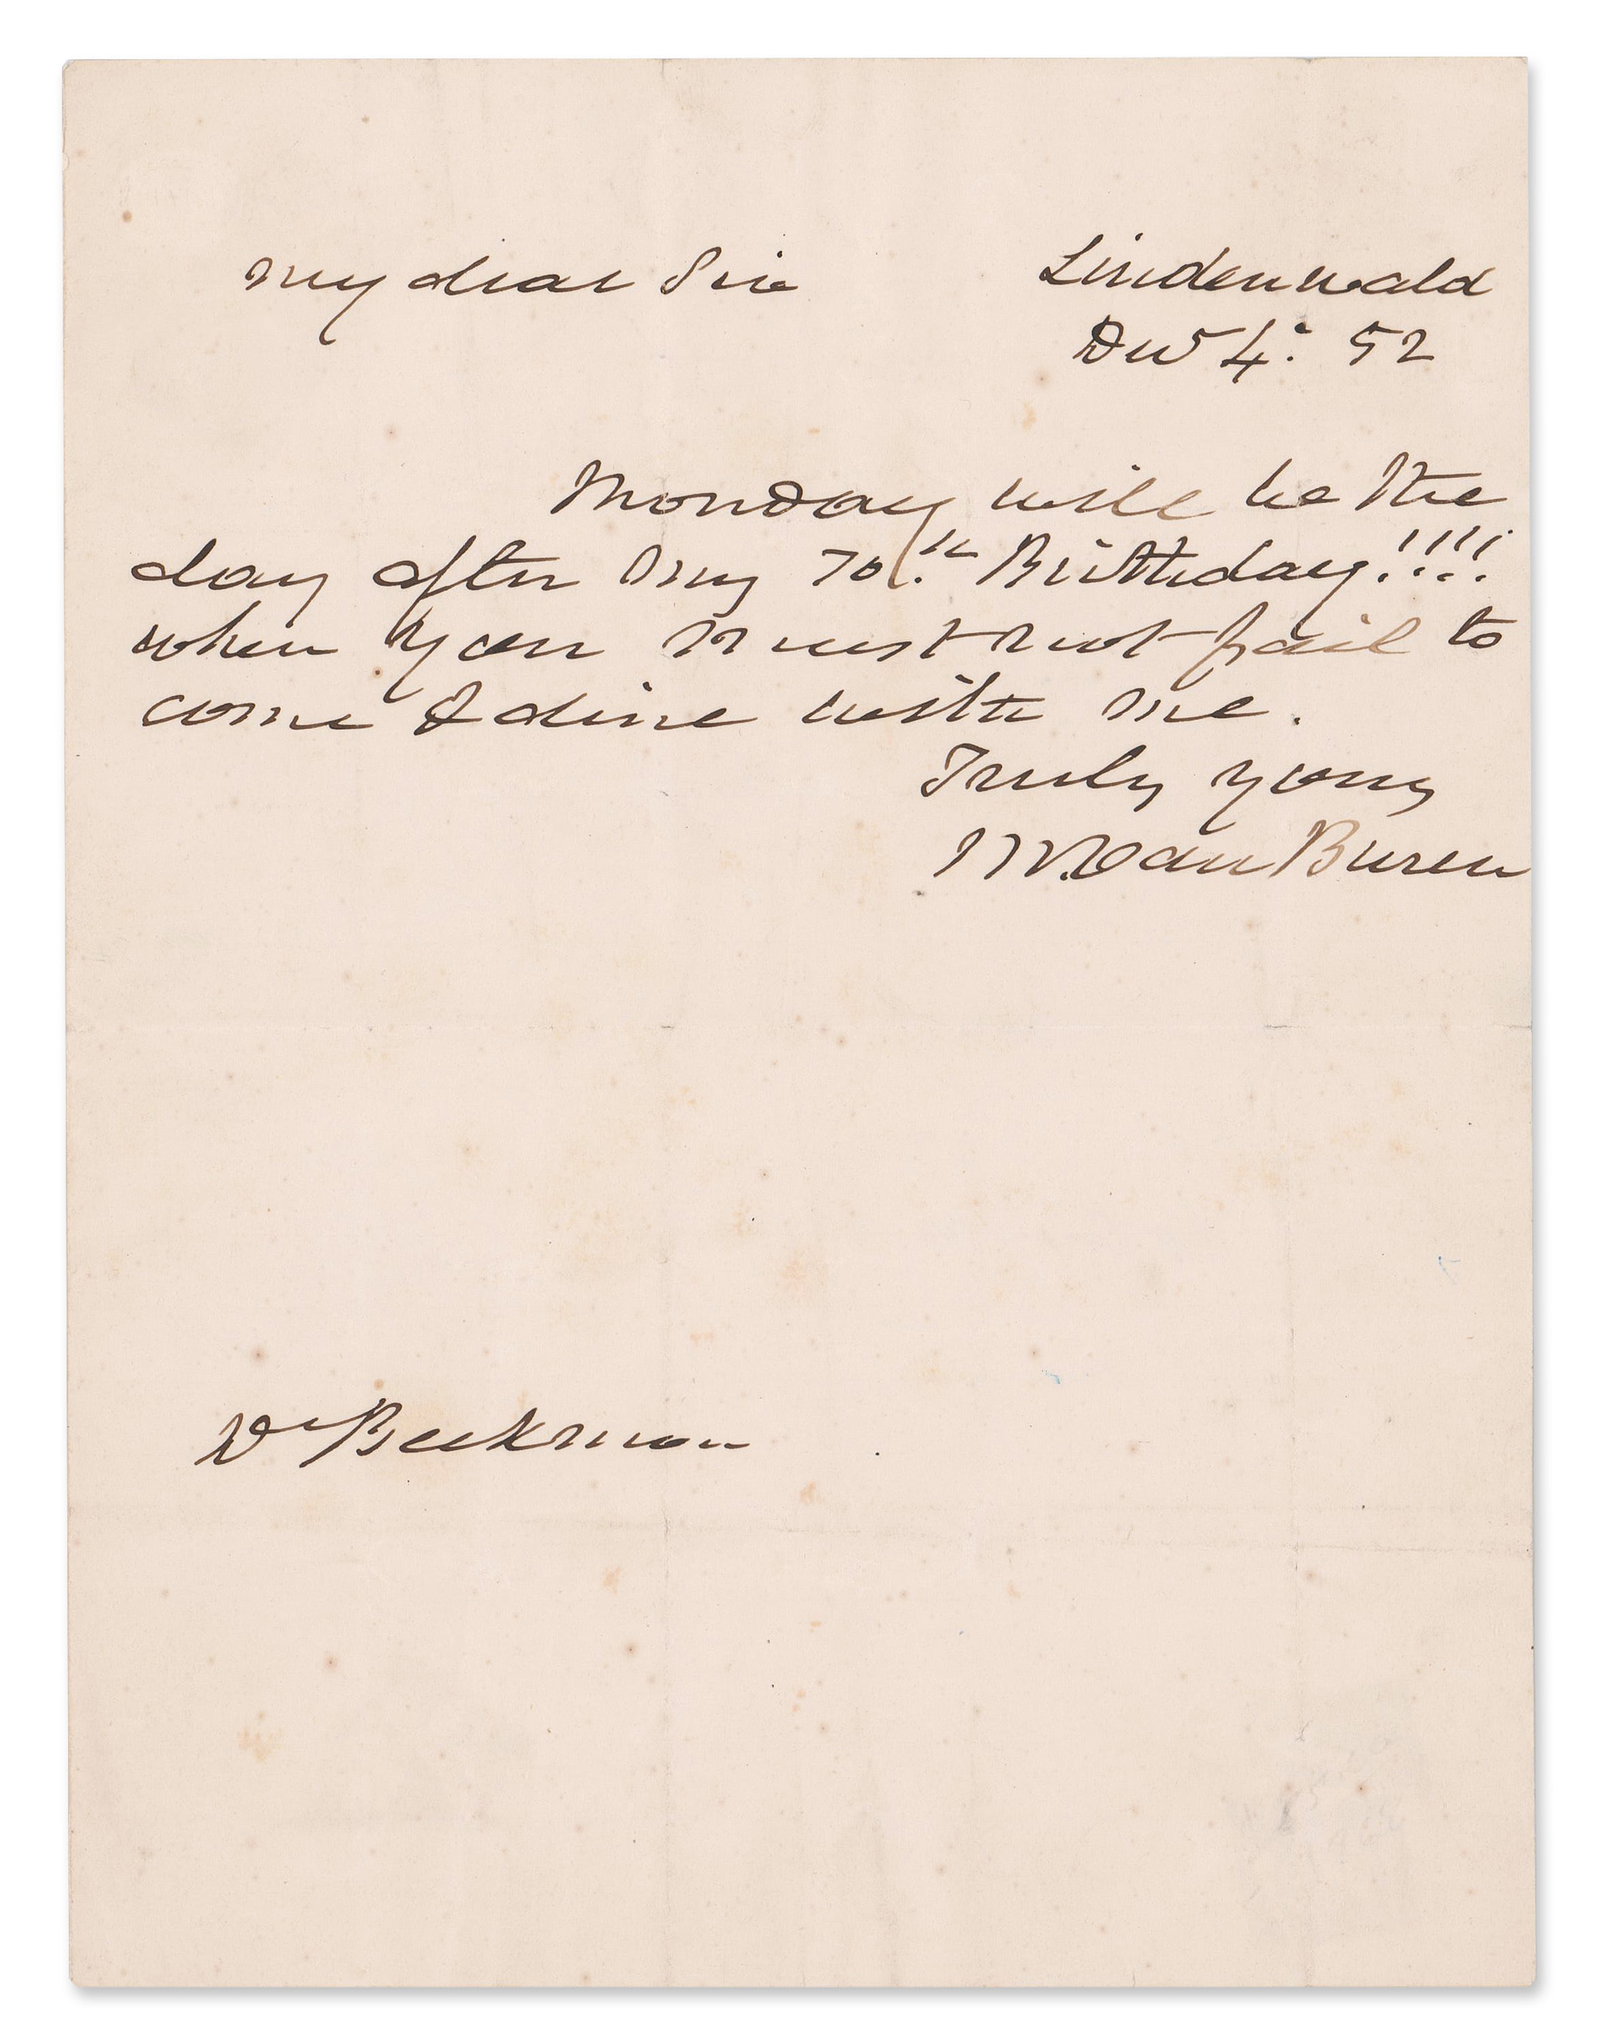 My dear Sir
Lindenwald
Dec 4. 52
Monday will be the
day after my 70.th Birthday!!!!
when you must not fail to
come & dine with me.
Truly yours
M. Van Buren
Dr Beekman